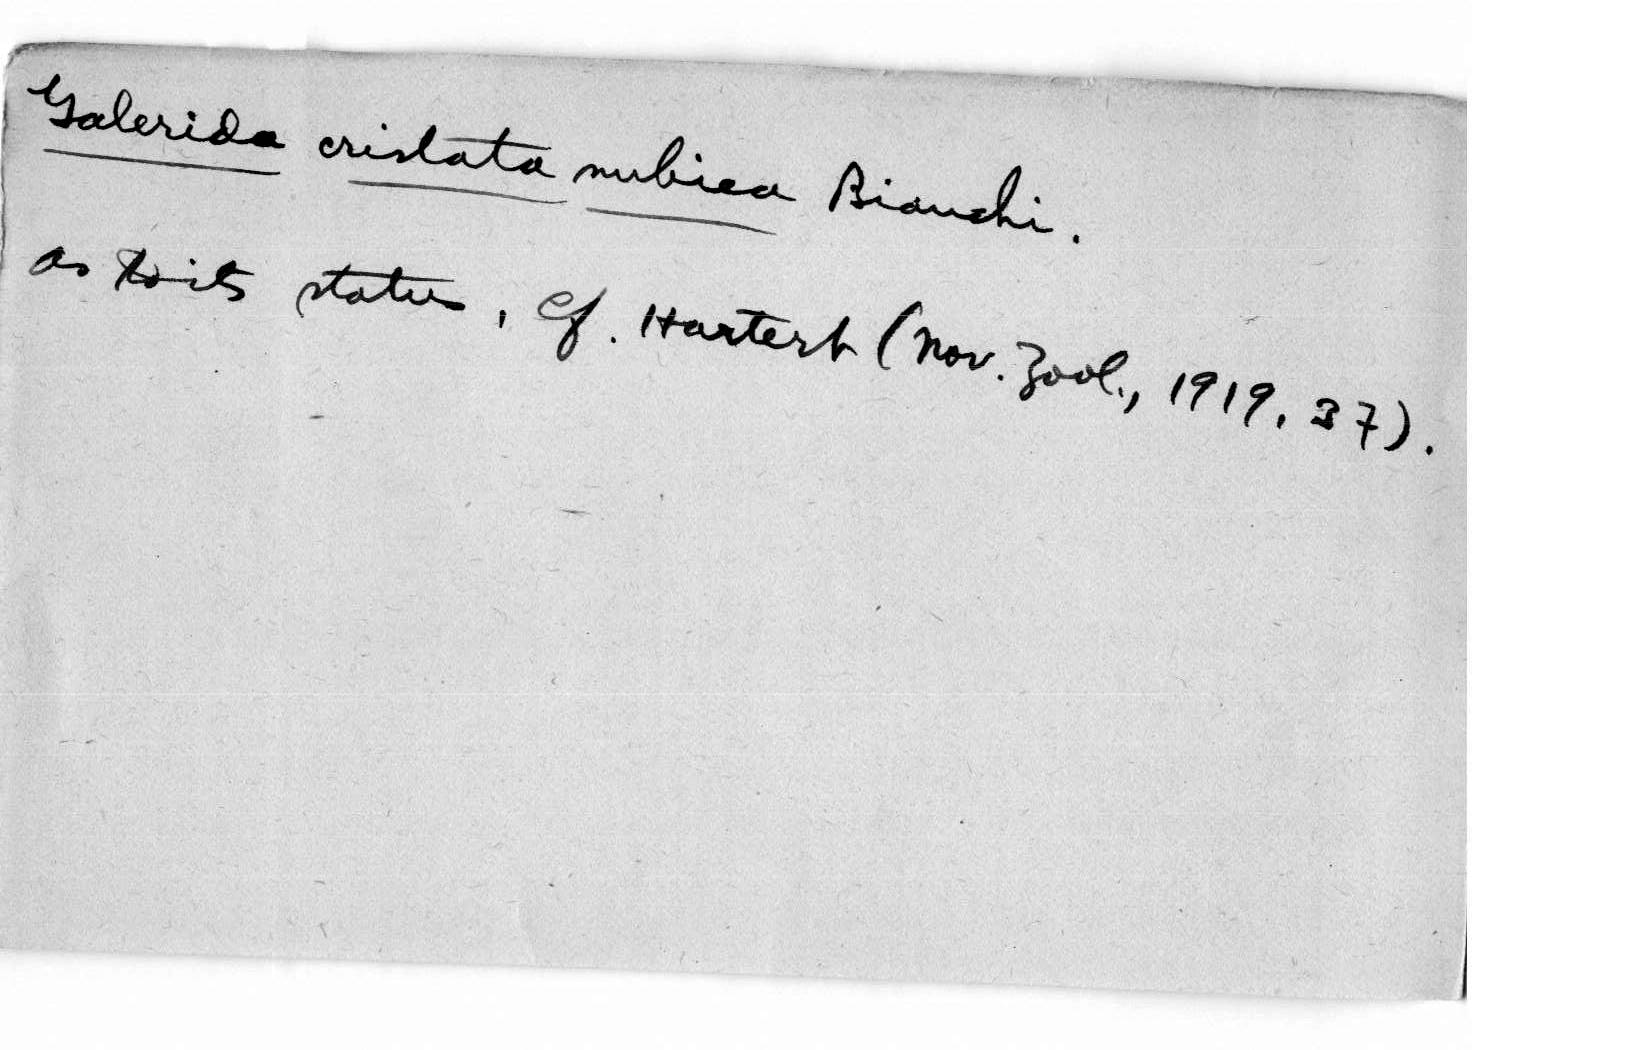 Galerida cristata nubica Bianchi.
as to its status, cf. Hartert (Nov. Zool., 1919, 37).